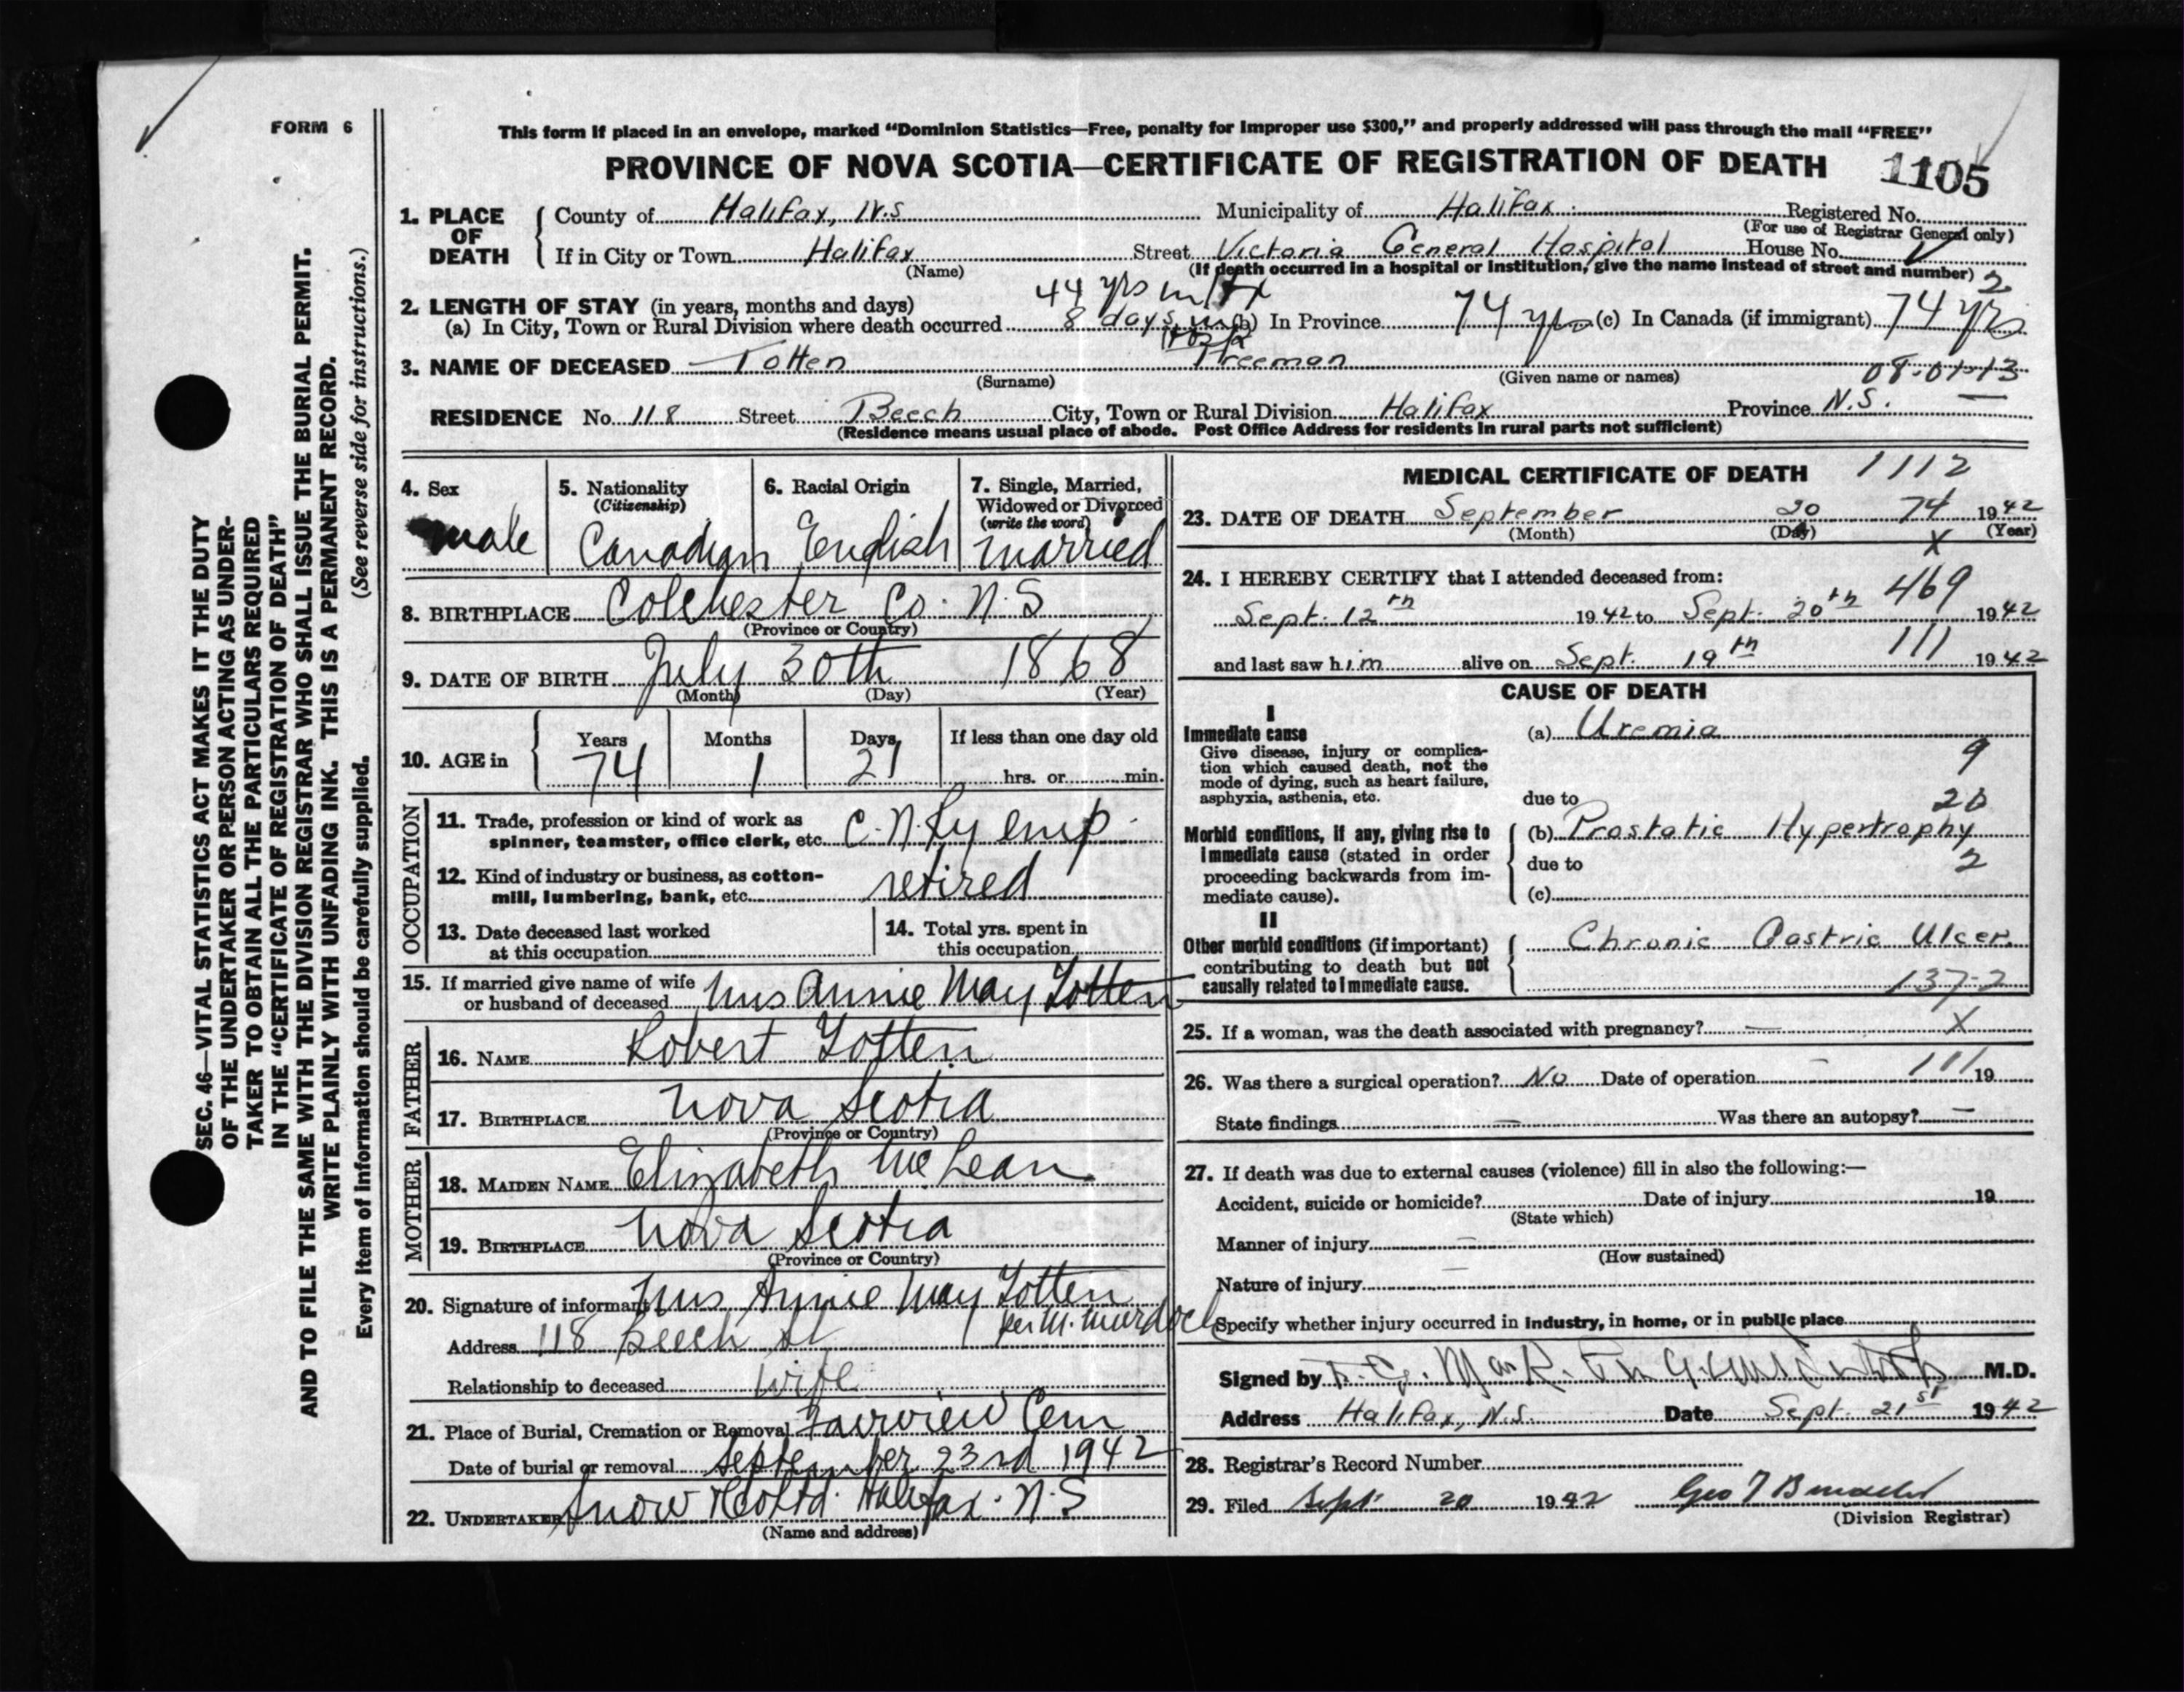 FORM 6
This form if placed in an envelope, marked “Dominion Statistics—Free, penalty for improper use $300,” and properly addressed will pass through the mail “FREE”
PROVINCE OF NOVA SCOTIA—CERTIFICATE OF REGISTRATION OF DEATH 1105
1. PLACE OF DEATH
County of Halifax, N.S Municipality of Halifax Registered No.
(For use of Registrar General only)
If in City or Town Halifax Street Victoria General Hospital House No.
(Name) (If death occurred in a hospital or institution, give the name instead of street and number) 2
44 yrs
2. LENGTH OF STAY (in years, months and days)
(a) In City, Town or Rural Division where death occurred 8 days in (b) In Province 74 yrs (c) In Canada (if immigrant) 74 yrs
3. NAME OF DECEASED Totten Freeman
(Surname) (Given name or names) 08-01-13
RESIDENCE No. 118 Street Beech City, Town or Rural Division Halifax Province N.S. —
(Residence means usual place of abode. Post Office Address for residents in rural parts not sufficient)
4. Sex
male
5. Nationality
(Citizenship)
Canadian
6. Racial Origin
English
7. Single, Married,
Widowed or Divorced
(write the word)
married
8. BIRTHPLACE Colchester Co. N.S
(Province or Country)
9. DATE OF BIRTH July 30th 1868
(Month) (Day) (Year)
10. AGE in
Years Months Days If less than one day old
74 1 21 hrs. or min.
OCCUPATION
11. Trade, profession or kind of work as
spinner, teamster, office clerk, etc. C.N.Ry emp.
12. Kind of industry or business, as cotton-
mill, lumbering, bank, etc. retired
13. Date deceased last worked
at this occupation
14. Total yrs. spent in
this occupation
15. If married give name of wife
or husband of deceased Mrs Annie May Totten
FATHER
16. NAME Robert Totten
17. BIRTHPLACE Nova Scotia
(Province or Country)
MOTHER
18. MAIDEN NAME Elizabeth McLean
19. BIRTHPLACE Nova Scotia
(Province or Country)
20. Signature of informant Mrs Annie May Totten
per M. Murdoch
Address 118 Beech St
Relationship to deceased wife
21. Place of Burial, Cremation or Removal Fairview Cem
Date of burial or removal September 23rd 1942
22. UNDERTAKER Snow & Co Ltd. Halifax. N.S
(Name and address)
MEDICAL CERTIFICATE OF DEATH 1112
23. DATE OF DEATH September 20 74 1942
(Month) (Day) (Year)
X
24. I HEREBY CERTIFY that I attended deceased from: 469
Sept. 12th 1942 to Sept. 20th 1942
and last saw him alive on Sept. 19th 111 1942
CAUSE OF DEATH
I
Immediate cause (a) Uremia
Give disease, injury or complica-
tion which caused death, not the
mode of dying, such as heart failure,
asphyxia, asthenia, etc. due to
9
20
Morbid conditions, if any, giving rise to
immediate cause (stated in order
proceeding backwards from im-
mediate cause).
(b) Prostatic Hypertrophy
due to 2
(c)
II
Other morbid conditions (if important)
contributing to death but not
causally related to immediate cause.
Chronic Gastric Ulcer.
137-2
25. If a woman, was the death associated with pregnancy? — X
26. Was there a surgical operation? No Date of operation — 111 19
State findings — Was there an autopsy? —
27. If death was due to external causes (violence) fill in also the following:—
Accident, suicide or homicide? Date of injury 19
(State which)
Manner of injury
(How sustained)
Nature of injury
Specify whether injury occurred in industry, in home, or in public place
Signed by M.D.
Address Halifax, N.S. Date Sept. 21st 1942
28. Registrar's Record Number
29. Filed Sept. 20 1942 Geo
(Division Registrar)
SEC. 46—VITAL STATISTICS ACT MAKES IT THE DUTY
OF THE UNDERTAKER OR PERSON ACTING AS UNDER-
TAKER TO OBTAIN ALL THE PARTICULARS REQUIRED
IN THE “CERTIFICATE OF REGISTRATION OF DEATH”
AND TO FILE THE SAME WITH THE DIVISION REGISTRAR WHO SHALL ISSUE THE BURIAL PERMIT.
WRITE PLAINLY WITH UNFADING INK. THIS IS A PERMANENT RECORD.
Every item of information should be carefully supplied. (See reverse side for instructions.)